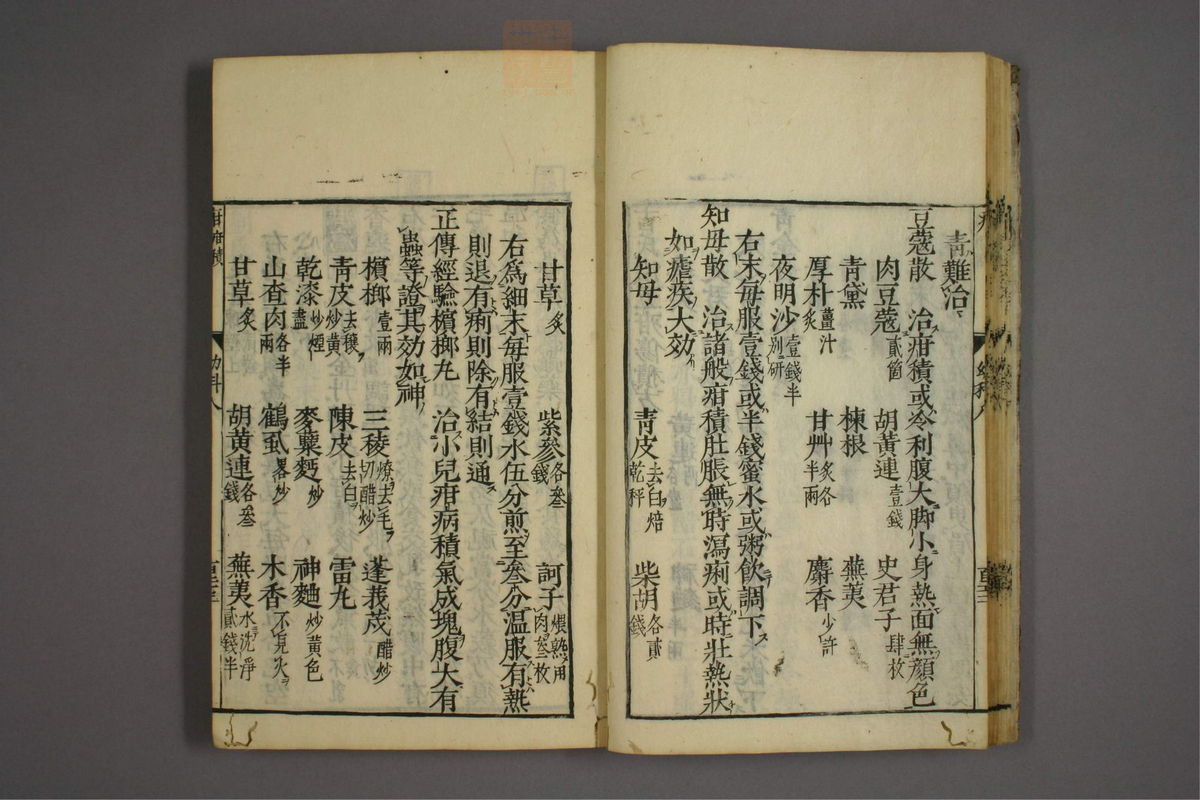 青難治
豆蔻散 治疳積或冷利腹大脚小身熱面無顔色
肉豆蔻貳箇 胡黃連壹錢 史君子肆枚
青黛 楝根 蕪荑
厚朴薑汁炙 甘艸炙各半兩 麝香少許
夜明沙壹錢半別研
右末每服壹錢或半錢蜜水或粥飲調下
知母散 治諸般疳積肚脹無時瀉痢或時壯熱狀
如瘧疾大效
知母 青皮去白焙乾秤 柴胡各貳錢
甘草炙 紫參各叄錢 訶子煨熟用肉叄枚
右爲細末每服壹錢水伍分煎至叄分温服有熱
則退有痢則除有結則通
正傳經驗檳榔丸 治小兒疳病積氣成塊腹大有
蟲等證其效如神
檳榔壹兩 三稜燎去毛切醋炒 蓬莪茂醋炒
青皮去穰炒黃 陳皮去白 雷丸
乾漆炒煙盡 麥蘗麪炒 神麯炒黃色
山査肉各半兩 鶴虱畧炒 木香不見火
甘草炙 胡黃連各叄錢 蕪荑水洗淨貳錢半
幼科